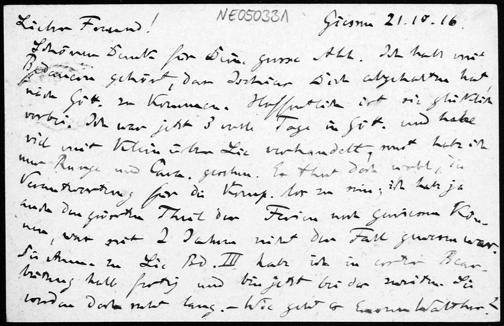 NE050331
Lieber Freund! Giessen 21.10.16.
Schönen Dank für Deine grosse Abh. Ich habe mit
Bedauern gehört, dass Dich abgehalten hat,
nach Gött. zu kommen. Hoffentlich ist sie glücklich
vorbei. Ich war jetzt 3 volle Tage in Gött. und habe
viel mit Klein über Lie verhandelt, sonst habe ich
nur Runge und Cara. gesehen. Es thut doch wohl, die
Verantwortung für die los zu sein; ich habe ja
auch den grössten Theil der Ferien
was seit 2 Jahren nicht der Fall gewesen war.
Die Anm. zu Lie Bd. III habe ich in erster Bear-
beitung halb fertig und bin jetzt bei der zweiten. Sie
werden doch recht lang. – Wie geht es Euerem Walther?